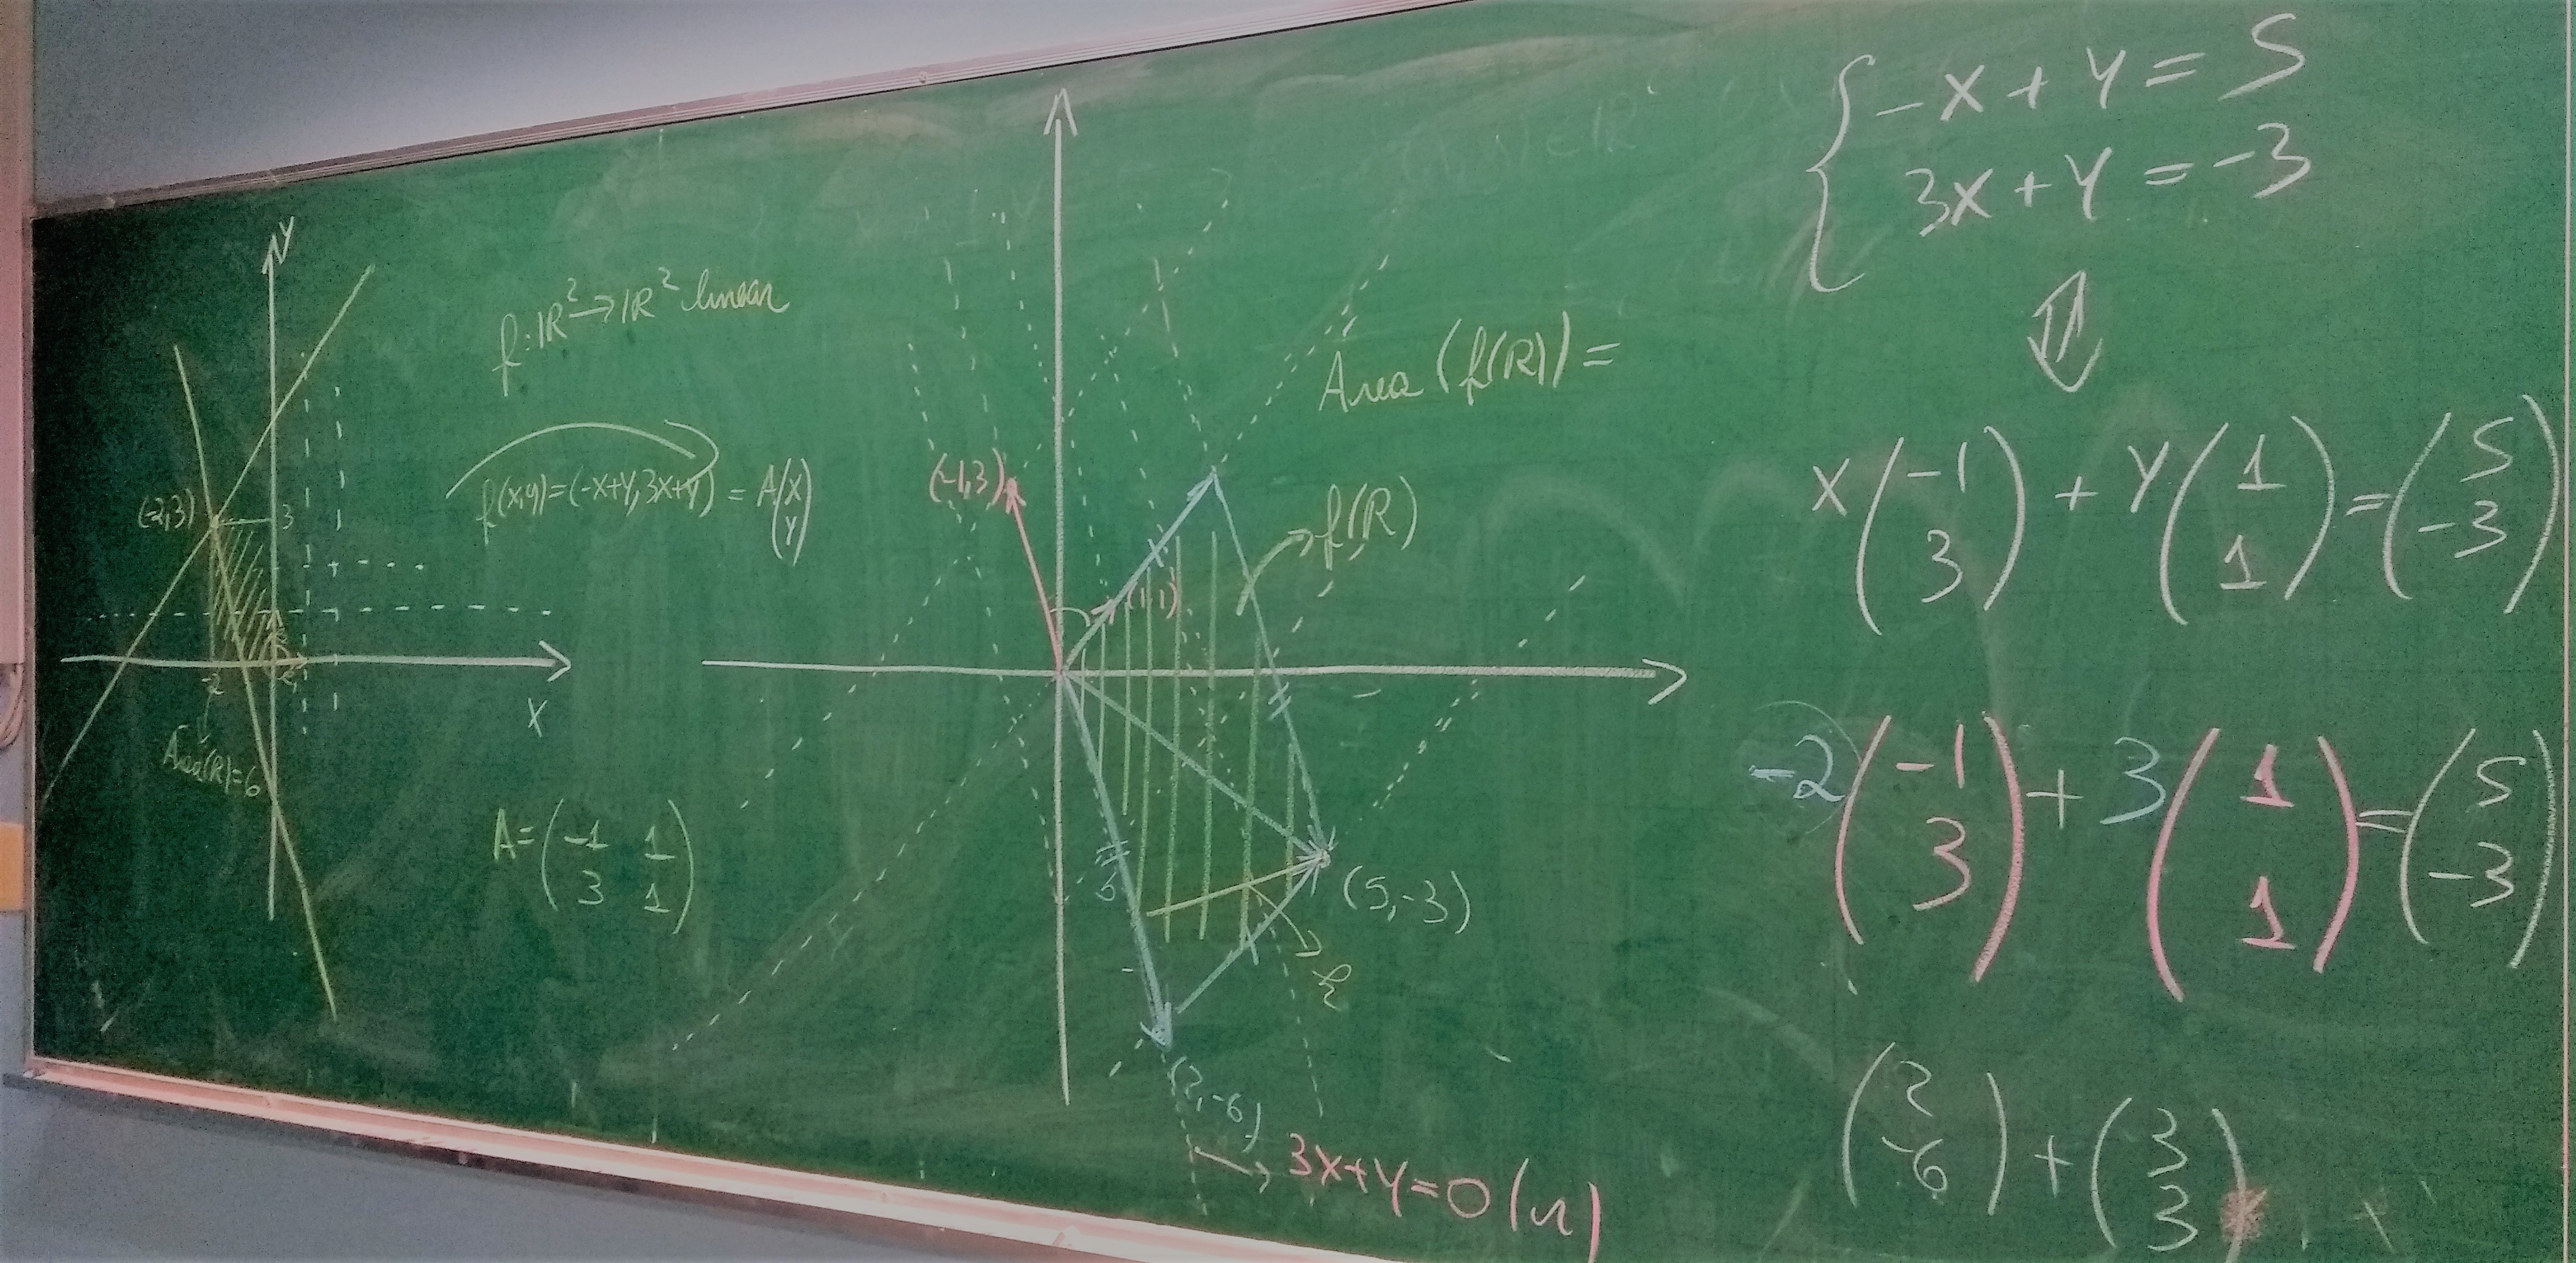 y
f: ℝ² → ℝ² linear
f(x,y)=(-x+y,3x+y) = A(x
y)
(-2,3)
3
-2
x
Area(R)=6
A=(-1 1
3 1)
(-1,3)
(1,1)
f(R)
Area (f(R)) =
(5,-3)
h
(2,-6)
3x+y=0 (r)
{-x+y=5
3x+y=-3
⇕
x(-1
3) + y(1
1) = (5
-3)
-2(-1
3) + 3(1
1) = (5
-3)
(2
-6) + (3
3)